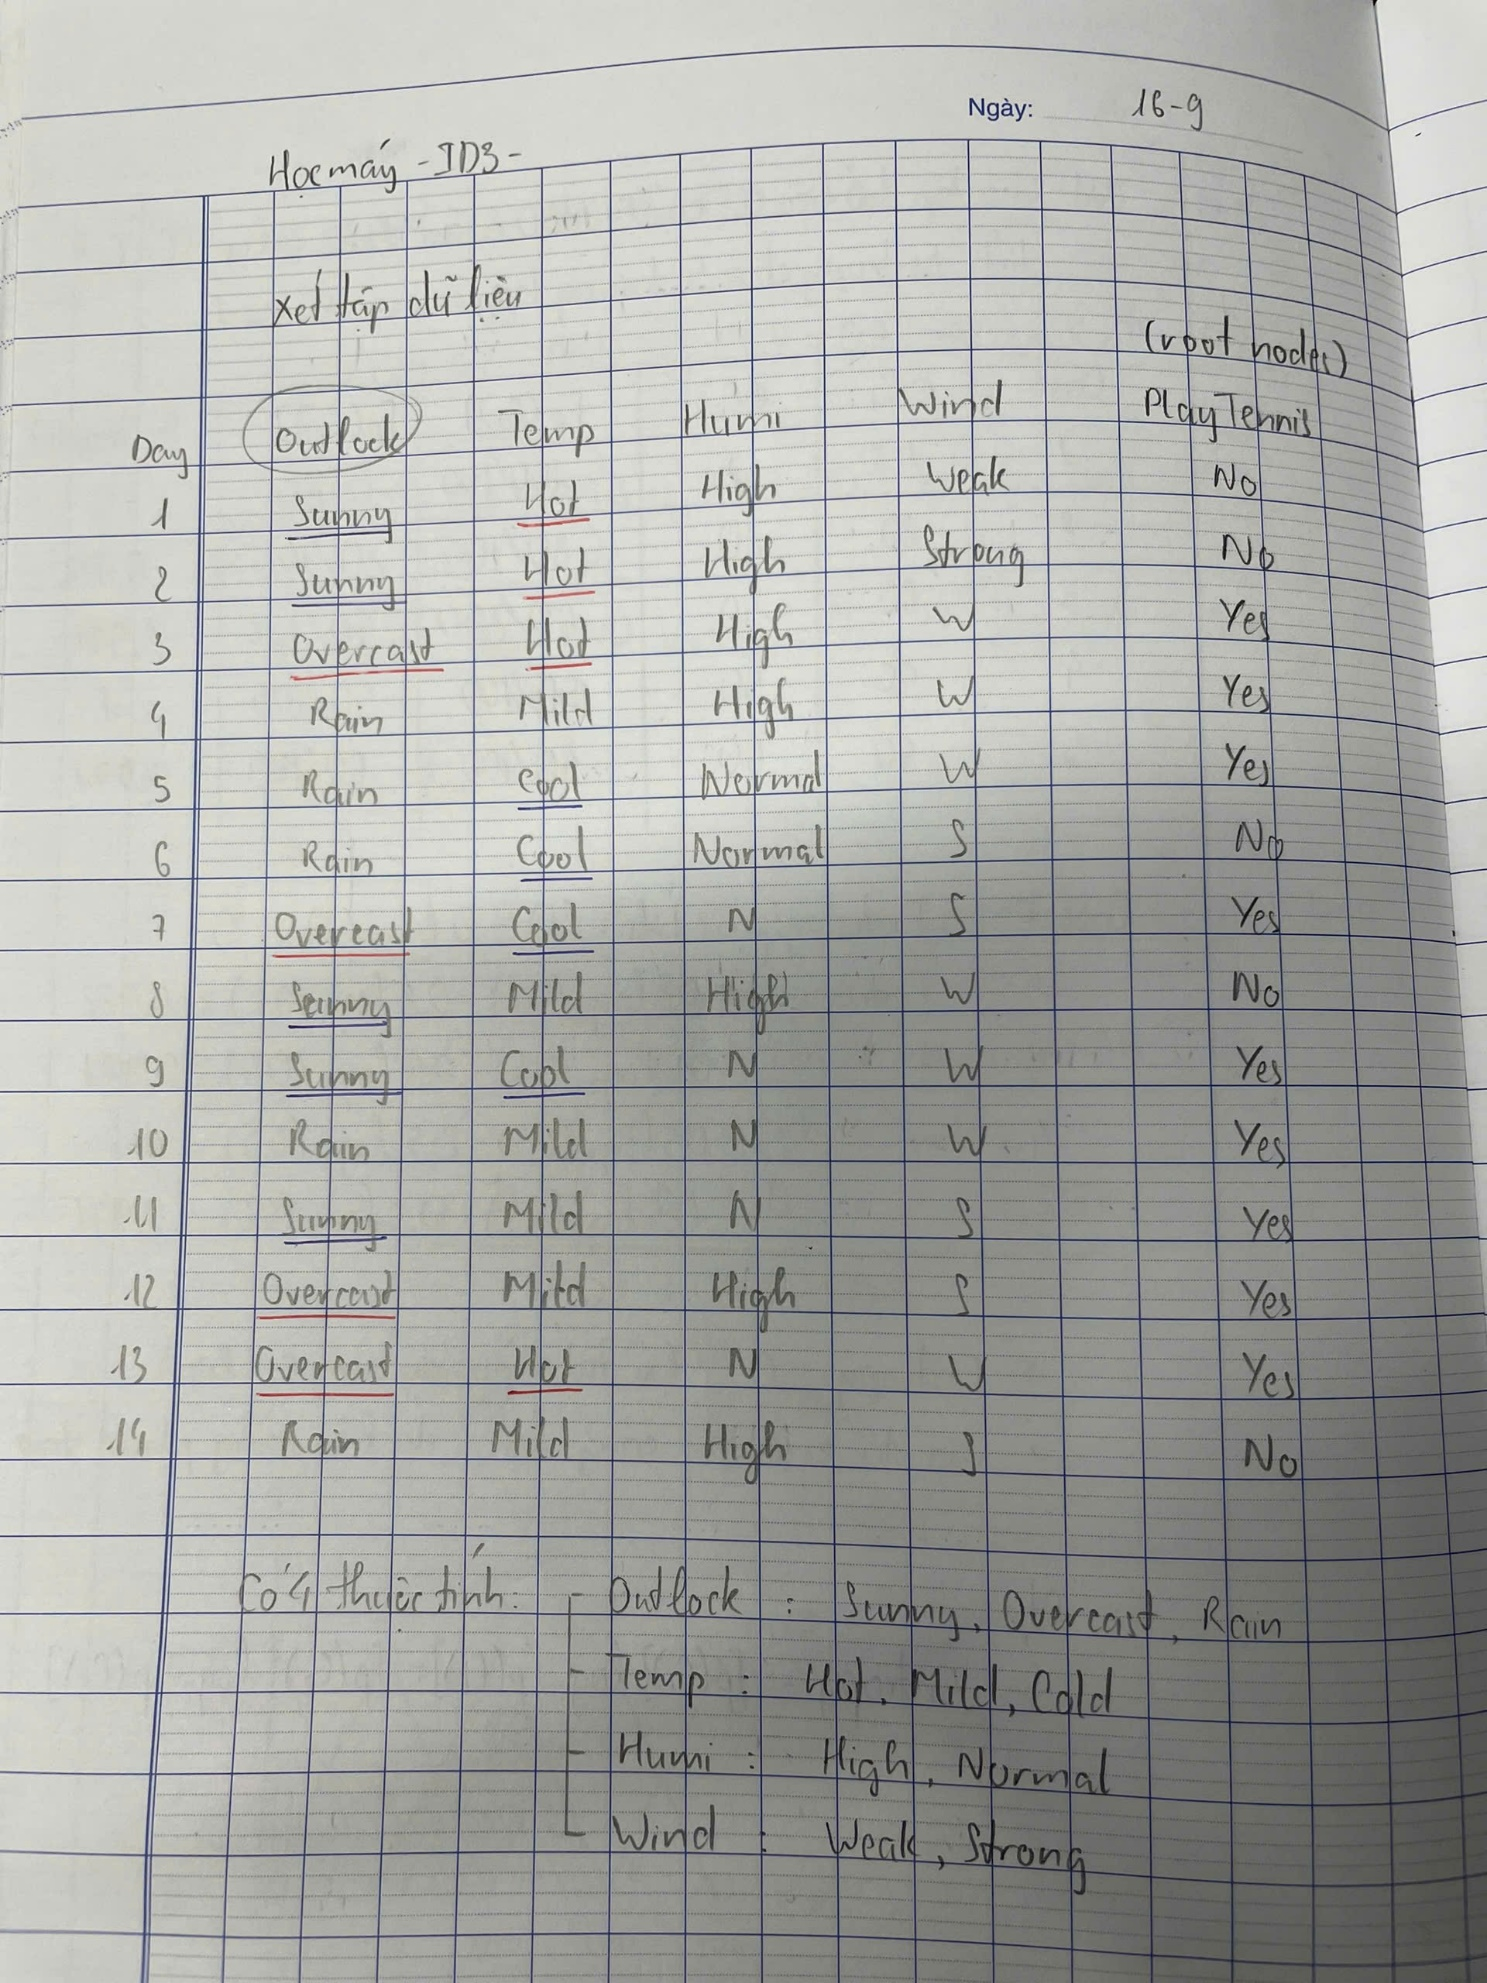 Ngày: 16-9
Học máy - ID3 -
Xét tập dữ liệu
(root nodes)
Day Outlock Temp Humi Wind PlayTennis
1 Sunny Hot High Weak No
2 Sunny Hot High Strong No
3 Overcast Hot High W Yes
4 Rain Mild High W Yes
5 Rain Cool Normal W Yes
6 Rain Cool Normal S No
7 Overcast Cool N S Yes
8 Sunny Mild High W No
9 Sunny Cool N W Yes
10 Rain Mild N W Yes
11 Sunny Mild N S Yes
12 Overcast Mild High S Yes
13 Overcast Hot N W Yes
14 Rain Mild High S No
Có 4 thuộc tính: - Outlock : Sunny, Overcast, Rain
- Temp : Hot, Mild, Cold
- Humi : High, Normal
- Wind : Weak, Strong